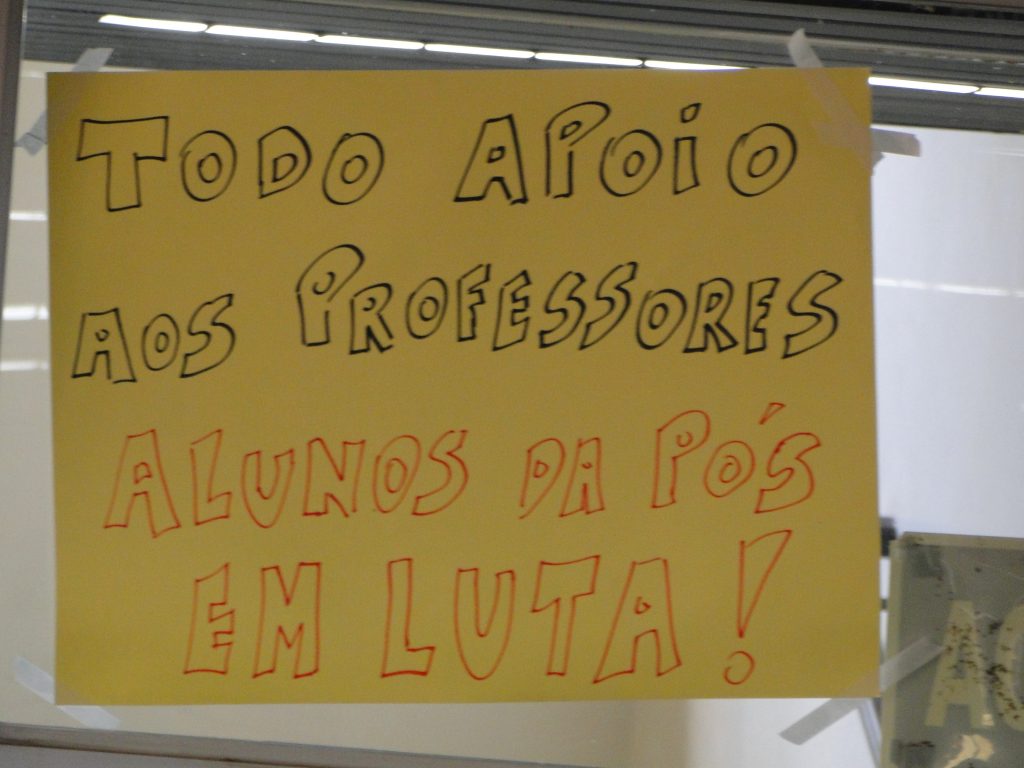 TODO APOIO
AOS PROFESSORES
ALUNOS DA PÓS
EM LUTA!